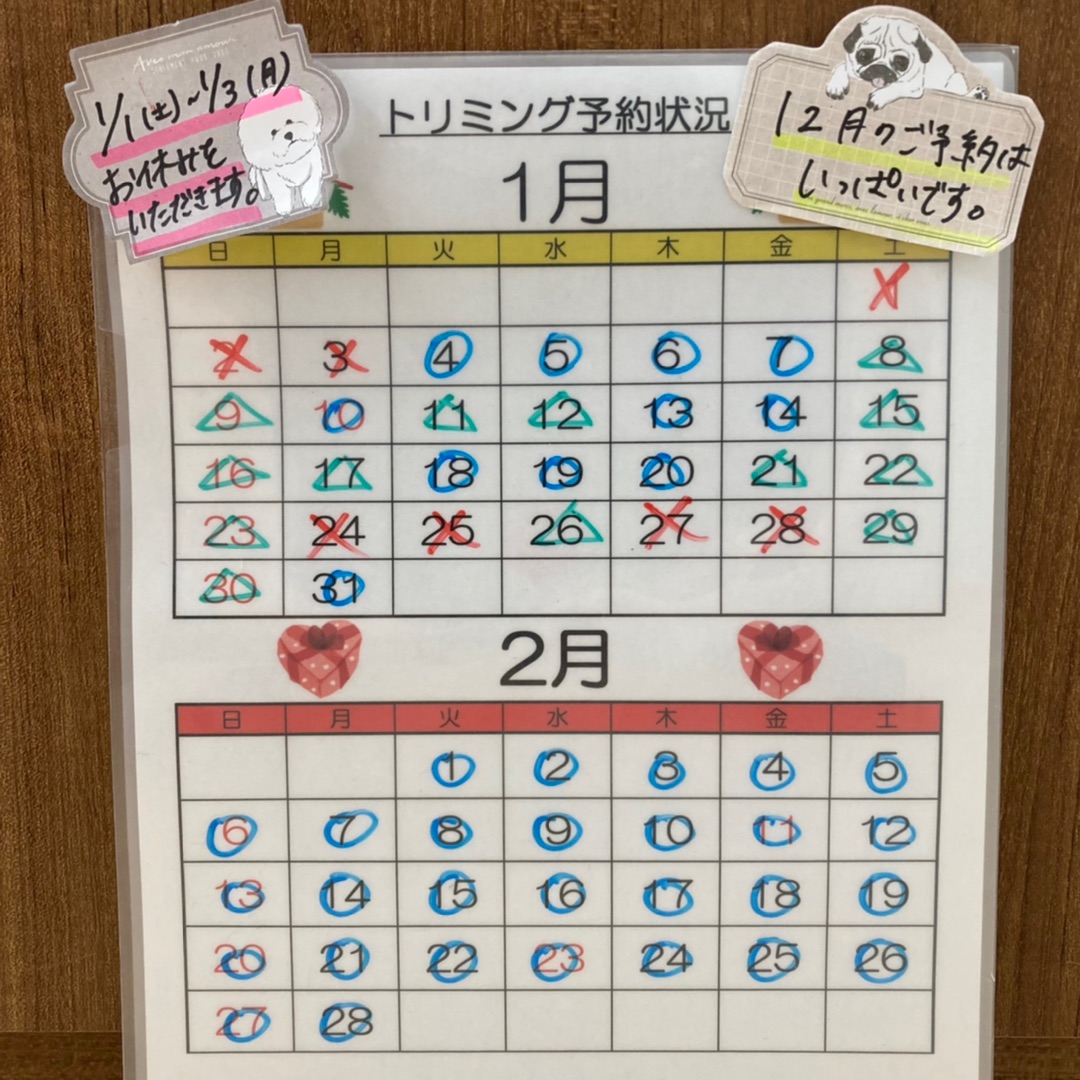 Avec mon amour
1/1(土)~1/3(月)
お休みを
いただきます。
トリミング予約状況
12月のご予約は
いっぱいです。
1月
日 月 火 水 木 金 土
1
2 3 4 5 6 7 8
9 10 11 12 13 14 15
16 17 18 19 20 21 22
23 24 25 26 27 28 29
30 31
2月
日 月 火 水 木 金 土
1 2 3 4 5
6 7 8 9 10 11 12
13 14 15 16 17 18 19
20 21 22 23 24 25 26
27 28